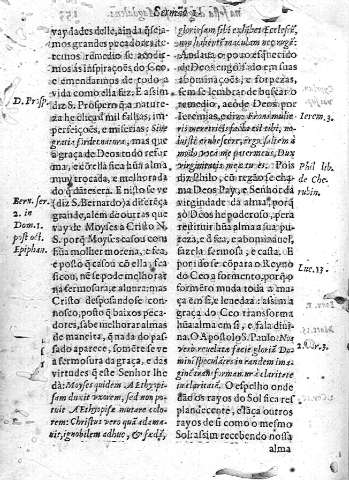 Sermão
vaydades delle, ainda q̃ seja-
mos grandes peccadores te-
remos remedio se acodir-
mos âs inspirações do Ceo,
e emendarmos de todo a
vida como ella fez. E assim
D. Prosp.
diz S. Prospero q̃ a nature-
za he cheya de mil faltas, im-
perfeições, e miserias: Sine
gratia
a graça de Deos tudo refor-
ma, e cõ ella fica hũa alma
muy trocada, e melhorada
do q̃ dãtes era. E nisto se ve
Bern. ser.
2. in
Dom. 1.
post oct.
Epiphan.
(diz S. Bernardo) a differẽça
grande, alem de outras que
vay de Moyses a Cristo N.
S. porq̃ Moyses casou com
hũa molher morena, e fea,
e posto q̃ casou cõ ella, fea
ficou, nẽ se pode melhorar
na fermosura, e alvura: mas
Cristo desposandose con-
nosco, posto q̃ baixos pecca-
dores, sabe melhorar almas
de maneira, q̃ nada do pas-
sado aparece, somẽte se vé
a fermosura da graça, e das
virtudes q̃ este Senhor lhe
dá: Moyses quidem Æthyopis-
sam duxit vxorem, sed non po-
tuit Æthyopissæ mutare colo-
rem: Christus vero quã adama-
uit, ignobilem adhuc, & fœdã,
gloriosam sibi exhibet Ecclesiã,
Andava o povo esquecido
de Deos engolfado em suas
abominações, e torpezas,
sem se lembrar de buscar o
remedio, acode Deos por
Ierem. 3.
Ieremias, e diz: Frons mulie-
ris meretricis facta est tibi, no-
luisti erubescere, ergo saltem à
modo voca me pater meus, Dux
virginitatis meæ tu es. Pois
Phil. lib.
de Che-
rubin.
diz Philo, cõ rezão se cha-
ma Deos Pay, e Senhor da
virgindade da alma, porq̃
só Deos he poderoso, pera
restituir hũa alma a sua pu-
reza, q̃ d fea, e abominavel,
fazela fermosa, e casta. E
Luc. 13.
por isso se cõpara o Reyno
do Ceo a formento, porq̃ o
formẽto muda toda a ma-
ça em si, e leveda: assim a
graça do Ceo transforma
hũa alma em si, e fala divi-
na. O Apostolo S. Paulo: Nos
2. Cor. 3.
vero revelata facie gloriã Do-
mini speculantes in eandem ima-
ginẽ transformamur à claritate
in claritatẽ. O espelho onde
dão os rayos do Sol fica res-
plandecente, e lãça outros
rayos de si como o mesmo
Sol: assim recebendo nossa
alma